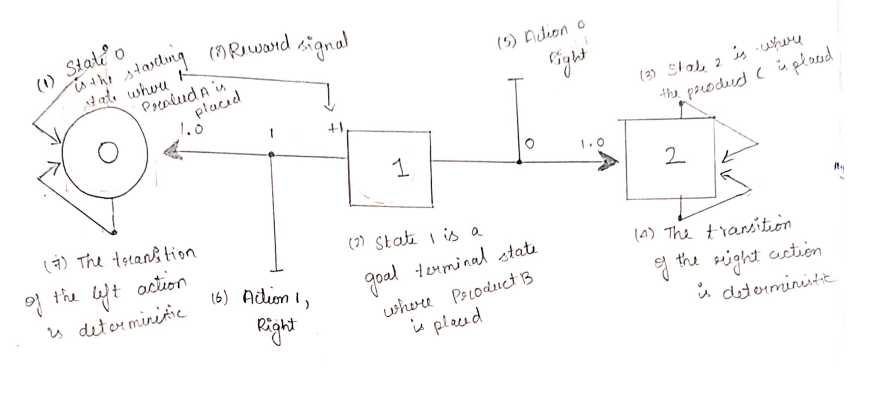 (1) State 0
is the starting
state where
Product A is
placed
(8) Reward signal
(5) Action 0
Right
(3) State 2 is where
the product C is placed
1.0
1
+1
0
1.0
0
1
2
(7) The transition
of the left action
is deterministic
(6) Action 1,
Right
(2) State 1 is a
goal terminal state
where Product B
is placed
(4) The transition
of the right action
is deterministic